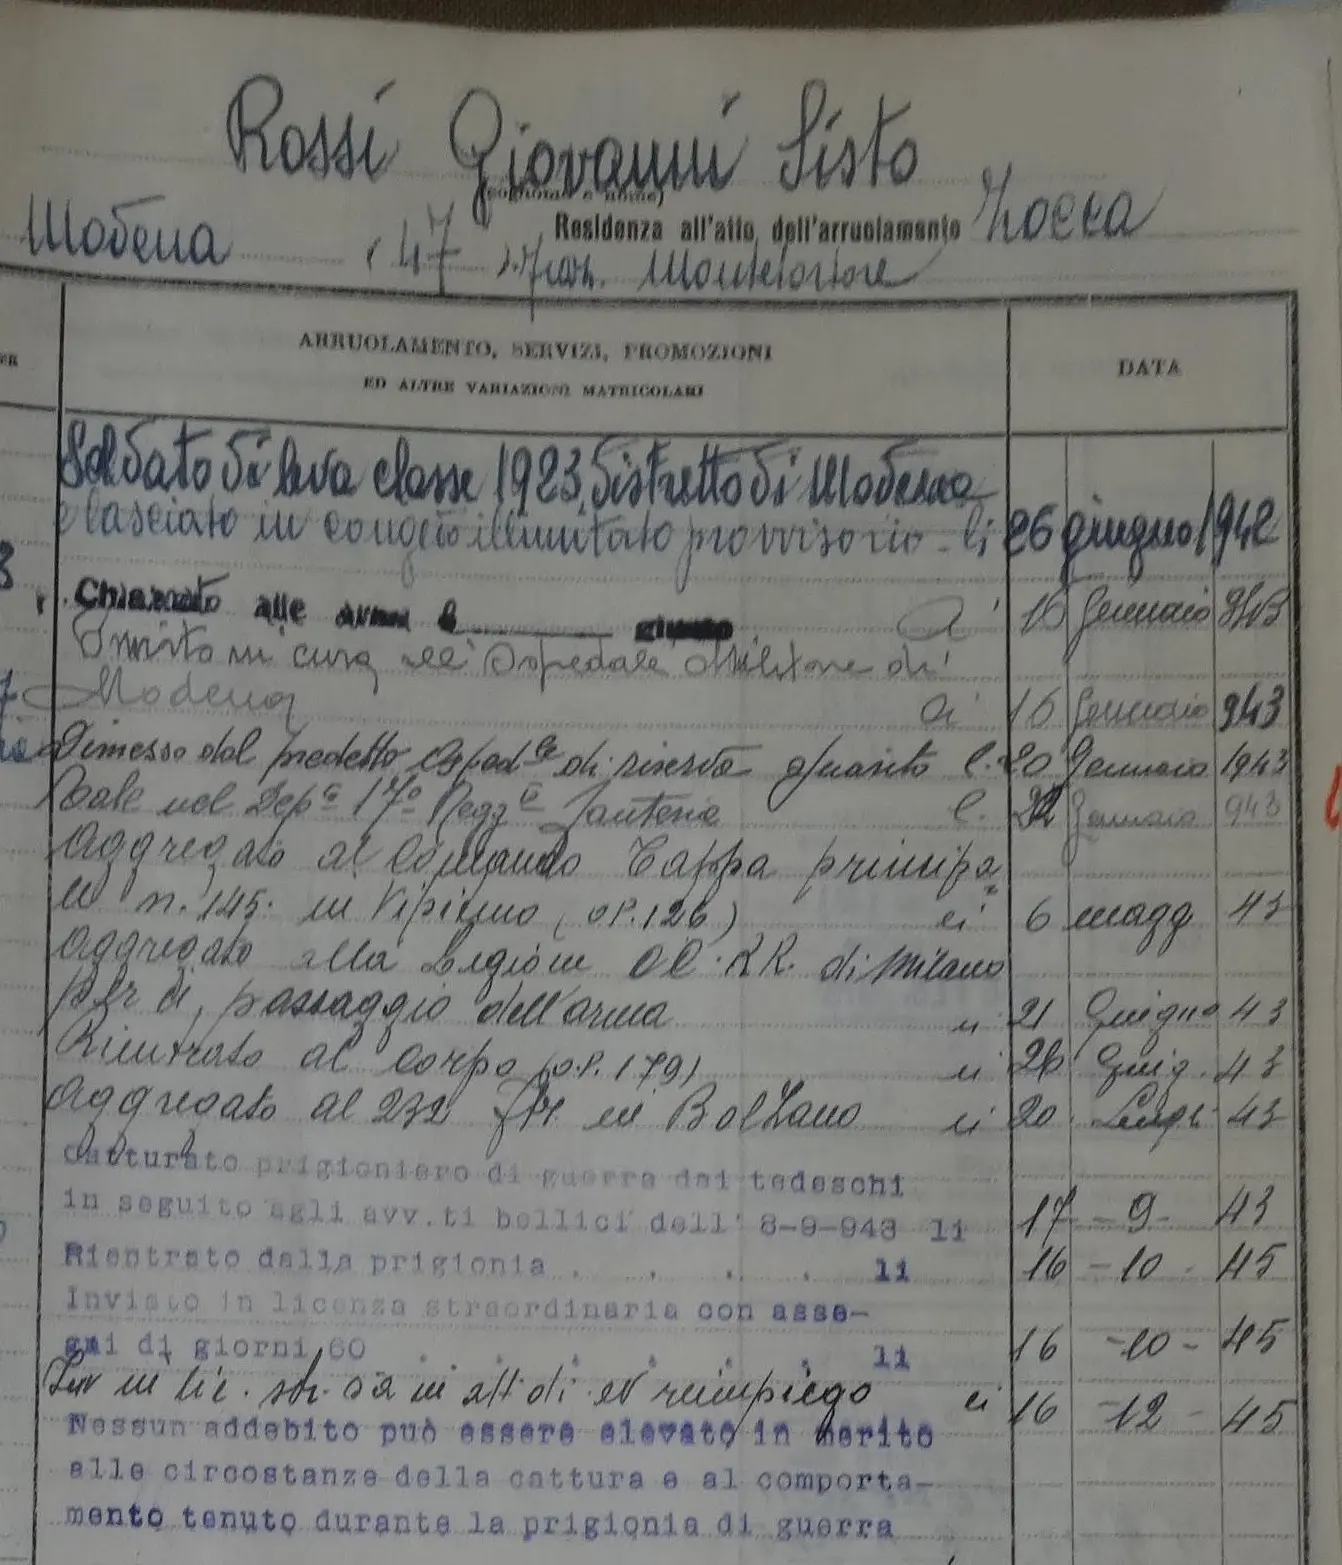 Rossi Giovanni Sisto
(cognome e nome)
Modena (47) Residenza all'atto dell'arruolamento Zocca
fraz. Montetortore
ARRUOLAMENTO, SERVIZI, PROMOZIONI
ED ALTRE VARIAZIONI MATRICOLARI
DATA
Soldato di leva classe 1923, distretto di Modena
e lasciato in congedo illimitato provvisorio - li 26 giugno 1942
Chiamato alle armi e giunto a' 16 Gennaio 943
in cura all'Ospedale Militare di
Modena a' 16 Gennaio 943
Dimesso dal predetto Osped.le di riserva guarito l. 20 Gennaio 1943
Tale nel Dep. 17° Regg. Fanteria l. 22 Gennaio 943
Aggregato al Comando Tappa principa
le n. 145. in Vipiteno (op. 126) li 6 magg 43
Aggregato alla Legione CC. RR. di Milano
per il passaggio dell'arma li 21 Giugno 43
Rientrato al Corpo (o.P. 179) li 26 Giug. 43
Aggregato al 232 Ftr. in Bolzano li 20 Lugl. 43
Catturato prigioniero di guerra dai tedeschi
in seguito agli avv.ti bellici dell' 8-9-943 li 17 - 9 - 43
Rientrato dalla prigionia . . . . li 16 - 10 - 45
Inviato in licenza straordinaria con asse-
gni di giorni 60 . . . . . . li 16 - 10 - 45
in lic. str. s.a in att. di ev. reimpiego li 16 - 12 - 45
Nessun addebito può essere elevato in merito
alle circostanze della cattura e al comporta-
mento tenuto durante la prigionia di guerra